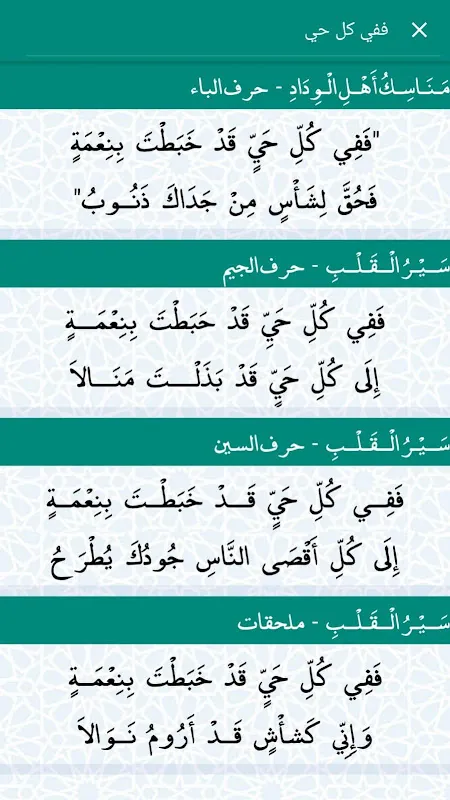 ففي كل حي
مَنَاسِكُ أَهْلِ الْوِدَادِ - حرف الباء
"فَفِي كُلِّ حَيٍّ قَدْ خَبَطْتَ بِنِعْمَةٍ
فَحُقَّ لِشَأْسٍ مِنْ جَدَاكَ ذَنُوبُ"
سَيْرُ الْقَلْبِ - حرف الجيم
فَفِي كُلِّ حَيِّ قَدْ حَبَطْتَ بِنِعْمَةٍ
إِلَى كُلِّ حَيٍّ قَدْ بَذَلْتَ مَنَالاَ
سَيْرُ الْقَلْبِ - حرف السين
فَفِي كُلِّ حَيٍّ قَدْ خَبَطْتَ بِنِعْمَةٍ
إِلَى كُلِّ أَقْصَى النَّاسِ جُودُكَ يُطْرَحُ
سَيْرُ الْقَلْبِ - ملحقات
فَفِي كُلِّ حَيٍّ قَدْ خَبَطْتَ بِنِعْمَةٍ
وَإِنِّي كَشَأْسٍ قَدْ أَرُومُ نَوَالاَ